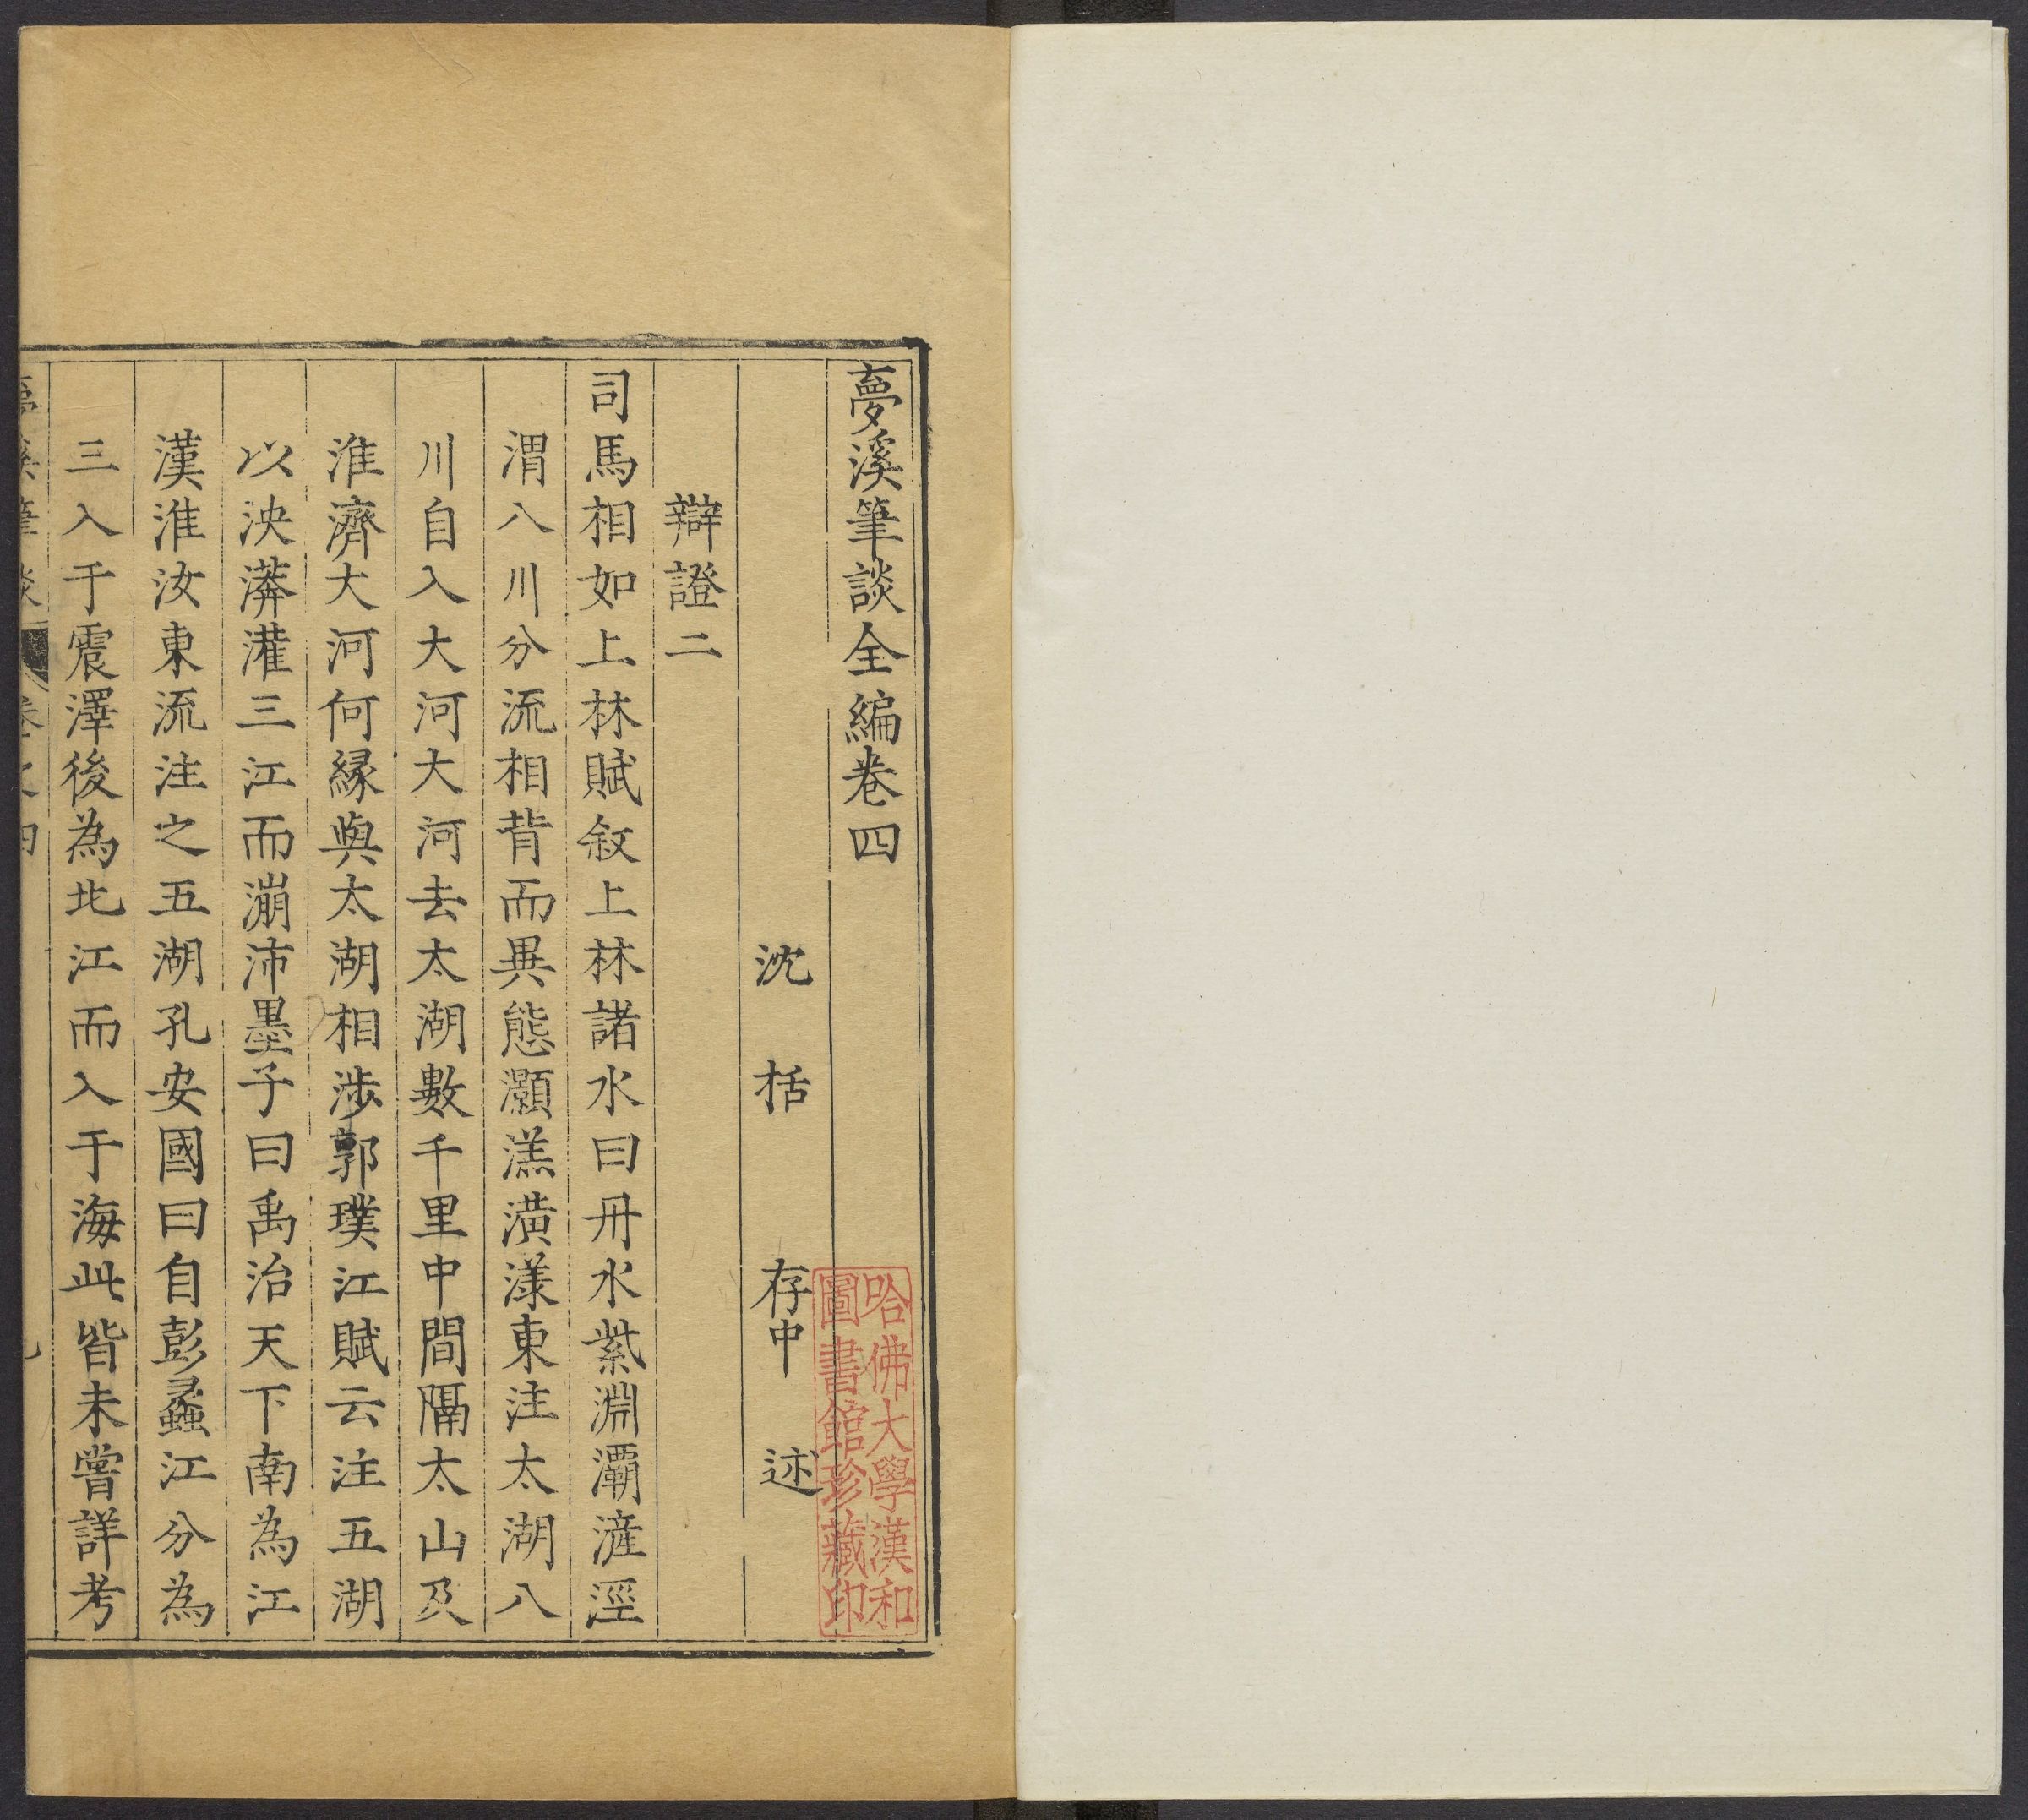 夢溪筆談全編卷四
沈括存中述
辯證二
司馬相如上林賦叙上林諸水曰丹水紫淵灞滻涇
渭八川分流相背而異態灝溔潢漾東注太湖八
川自入大河大河去太湖數千里中間隔太山及
淮濟大河何緣與太湖相涉郭璞江賦云注五湖
以泱漭灌三江而漰沛墨子曰禹治天下南為江
漢淮汝東流注之五湖孔安國曰自彭蠡江分為
三入于震澤後為北江而入于海此皆未嘗詳考
哈佛大學漢和
圖書館珍藏印